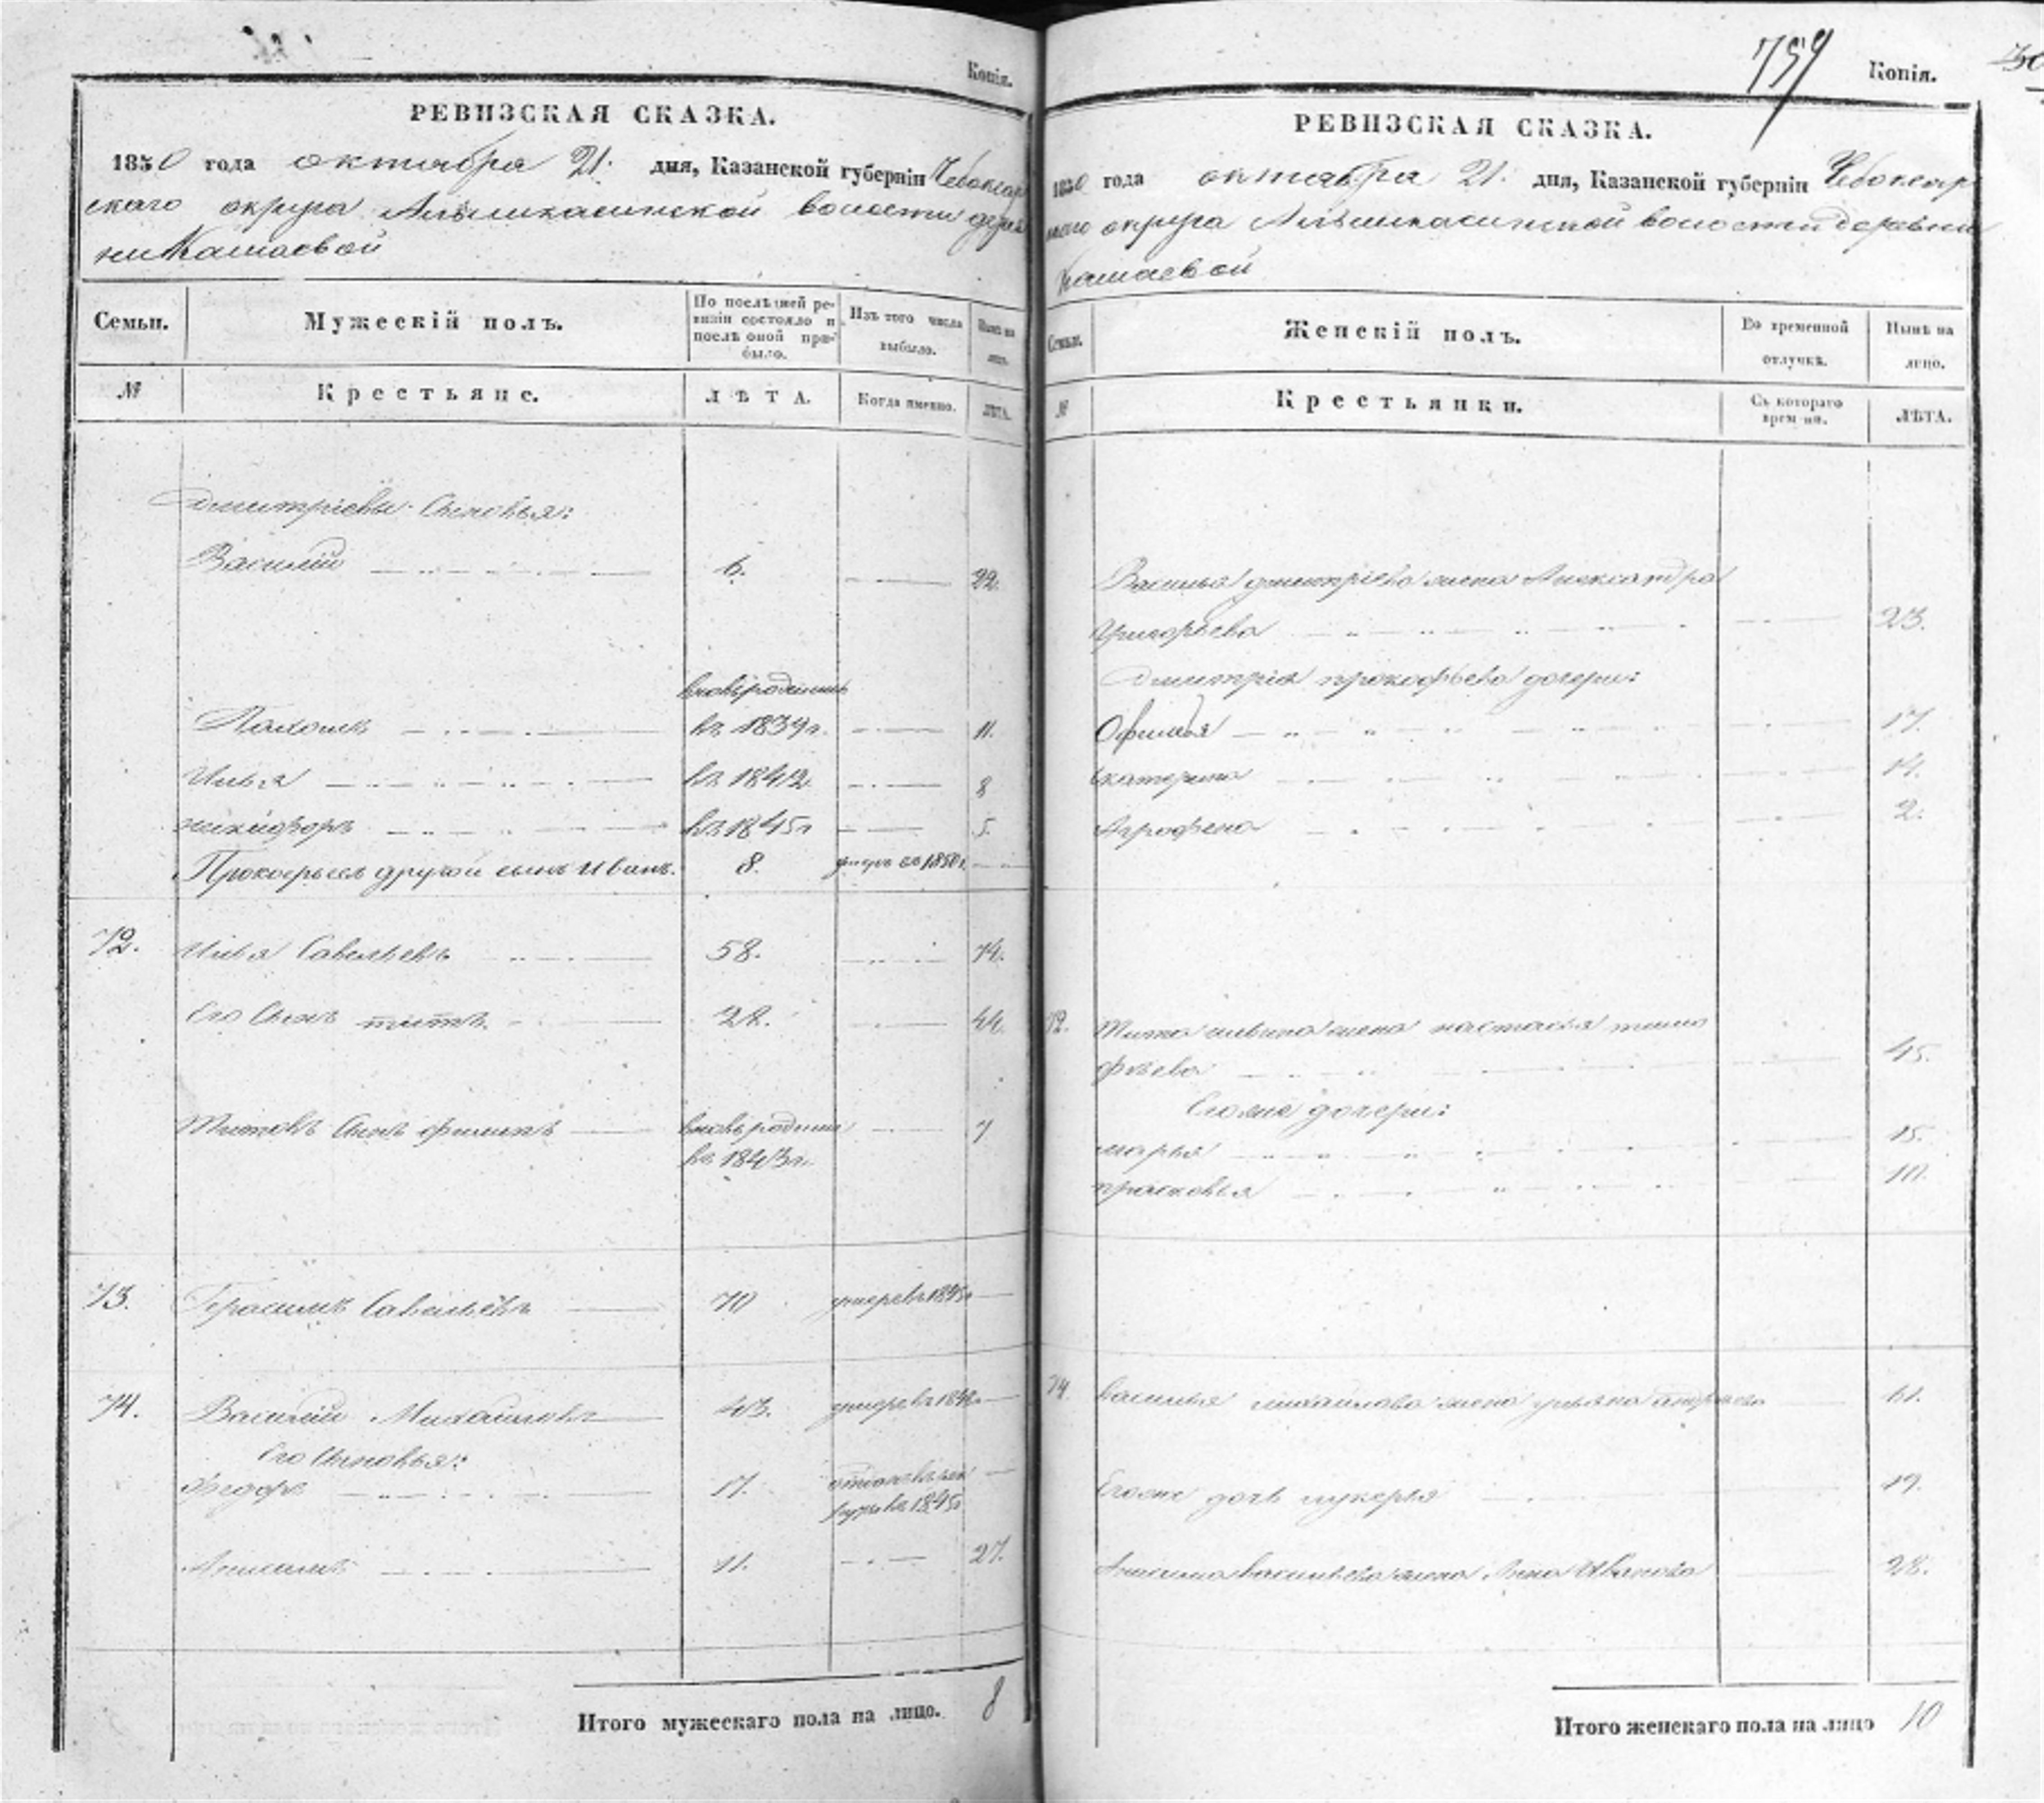 Копія.
РЕВИЗСКАЯ СКАЗКА.
1850 года октября 21. дня, Казанской губерніи Чебоксар
скаго округа Алымкасинской волости дерев
ни Кашаевой
Семьи.
Мужескій полъ.
По послѣдней ре-
визіи состояло и
послѣ оной при-
было.
Изъ того числа
выбыло.
Нынѣ на
лицо.
№
Крестьяне.
ЛѢТА.
Когда именно.
ЛѢТА.
Дмитріевы Сыновья:
Василій 6. 22.
вновьрожденный
Пахомъ въ 1839г. 11.
Илья въ 1842 8
никифоръ въ 1845г 5.
Прокофьевъ другой сынъ Иванъ. 8. умеръ въ 1850г.
72. Илья Савельевъ 58. 74.
Его Сынъ титъ. 28. 44.
Титовъ Сынъ филипъ вновьрожден 7
въ 1843г.
73. Герасимъ Савельевъ 70 умеръ въ 1845г
74. Василій Михайловъ 43. умеръ въ 184
Его Сыновья:
Федоръ 17. отданъ въ рек
руты въ 1845г
Анисимъ 11. 27.
Итого мужескаго пола на лицо. 8
759
Копія.
РЕВИЗСКАЯ СКАЗКА.
1850 года октября 21. дня, Казанской губерніи Чебоксар
скаго округа Алымкасинской волости деревни
Кашаевой
Семьи.
Женскій полъ.
Во временной
отлучкѣ.
Нынѣ на
лицо.
№
Крестьянки.
Съ котораго
времени.
ЛѢТА.
Василья дмитріева жена Александра
Григорьева 23.
Дмитрія прокофьева дочери:
Офимья 17.
Екатерина 14.
Аграфена 2.
72. Тита ильина жена настасья тимо
фѣева 45.
Его же дочери:
марья 15.
прасковья 10.
74. василья михайлова жена ульяна андреева 61.
Его же дочь лукерья 19.
Анисима васильева жена Анна Иванова 28.
Итого женскаго пола на лицо 10